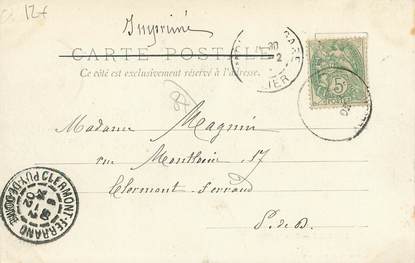 12f
Imprimé
CARTE POSTALE
Ce côté est exclusivement réservé à l'adresse.
GARE
30
LIER
5
Madame Magnin
rue Montlosier 17
Clermont-Ferrand
P. de D.
CLERMONT-FERRAND
PUY-DE-DOME
02